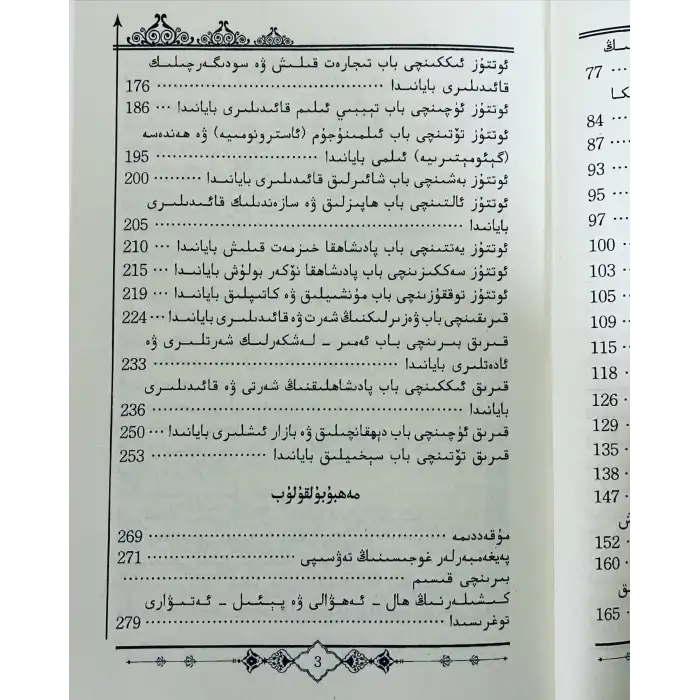 ئوتتۇز ئىككىنچى باب تىجارەت قىلىش ۋە سودىگەرچىلىك
قائىدىلىرى بايانىدا ····················· 176
ئوتتۇز ئۈچىنچى باب تېببىي ئىلىم قائىدىلىرى بايانىدا ··· 186
ئوتتۇز تۆتىنچى باب ئىلمىنۇجۇم (ئاسترونومىيە) ۋە ھەندەسە
(گېئومېتىرىيە) ئىلمى بايانىدا ····················· 195
ئوتتۇز بەشىنچى باب شائىرلىق قائىدىلىرى بايانىدا ········· 200
ئوتتۇز ئالتىنچى باب ھاپىزلىق ۋە سازەندىلىك قائىدىلىرى
بايانىدا ····················· 205
ئوتتۇز يەتتىنچى باب پادىشاھقا خىزمەت قىلىش بايانىدا ··· 210
ئوتتۇز سەككىزىنچى باب پادىشاھقا نۆكەر بولۇش بايانىدا ··· 215
ئوتتۇز توققۇزىنچى باب مۇنشىيلىق ۋە كاتىپلىق بايانىدا ··· 219
قىرىقىنچى باب ۋەزىرلىكنىڭ شەرت ۋە قائىدىلىرى بايانىدا ··· 224
قىرىق بىرىنچى باب ئەمىر - لەشكەرلىك شەرتلىرى ۋە
ئادەتلىرى بايانىدا ····················· 233
قىرىق ئىككىنچى باب پادىشاھلىقنىڭ شەرتى ۋە قائىدىلىرى
بايانىدا ····················· 236
قىرىق ئۈچىنچى باب دېھقانچىلىق ۋە بازار ئىشلىرى بايانىدا ··· 250
قىرىق تۆتىنچى باب سېخىيلىق بايانىدا ····················· 253
مەھبۇبۇلقۇلۇب
مۇقەددىمە ····················· 269
پەيغەمبەرلەر غوجىسىنىڭ تەۋسىپى ····················· 271
بىرىنچى قىسىم ·····················
كىشىلەرنىڭ ھال - ئەھۋالى ۋە پېئىل - ئەتىۋارى
توغرىسىدا ····················· 279
3
ىنىڭ
77
كا
84
87
93
95
97
100
103
105
109
115
118
126
129
135
138
147
ش
152
160
ق
165